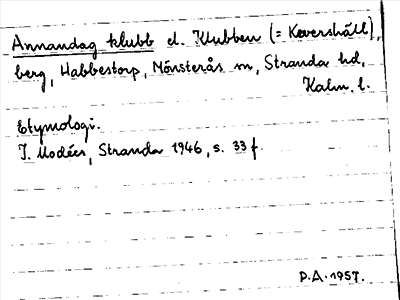 Annandag klubb el. Klubben (= Kevershäll),
berg, Habbestorp, Mönsterås sn, Stranda hd,
Kalm. l.
Etymologi.
I. Modéer, Stranda 1946, s. 33 f.
P.A. 1957.